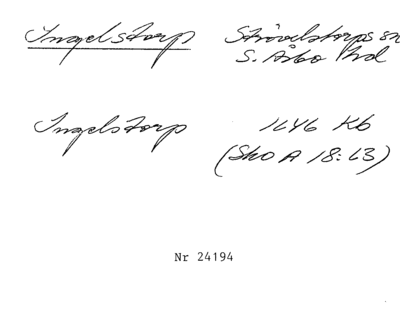 Ingelstorp Strövelstorps sn
S. Åsbo hd
Ingelstorp 1646 Kb
(Sko A 18:63)
Nr 24194